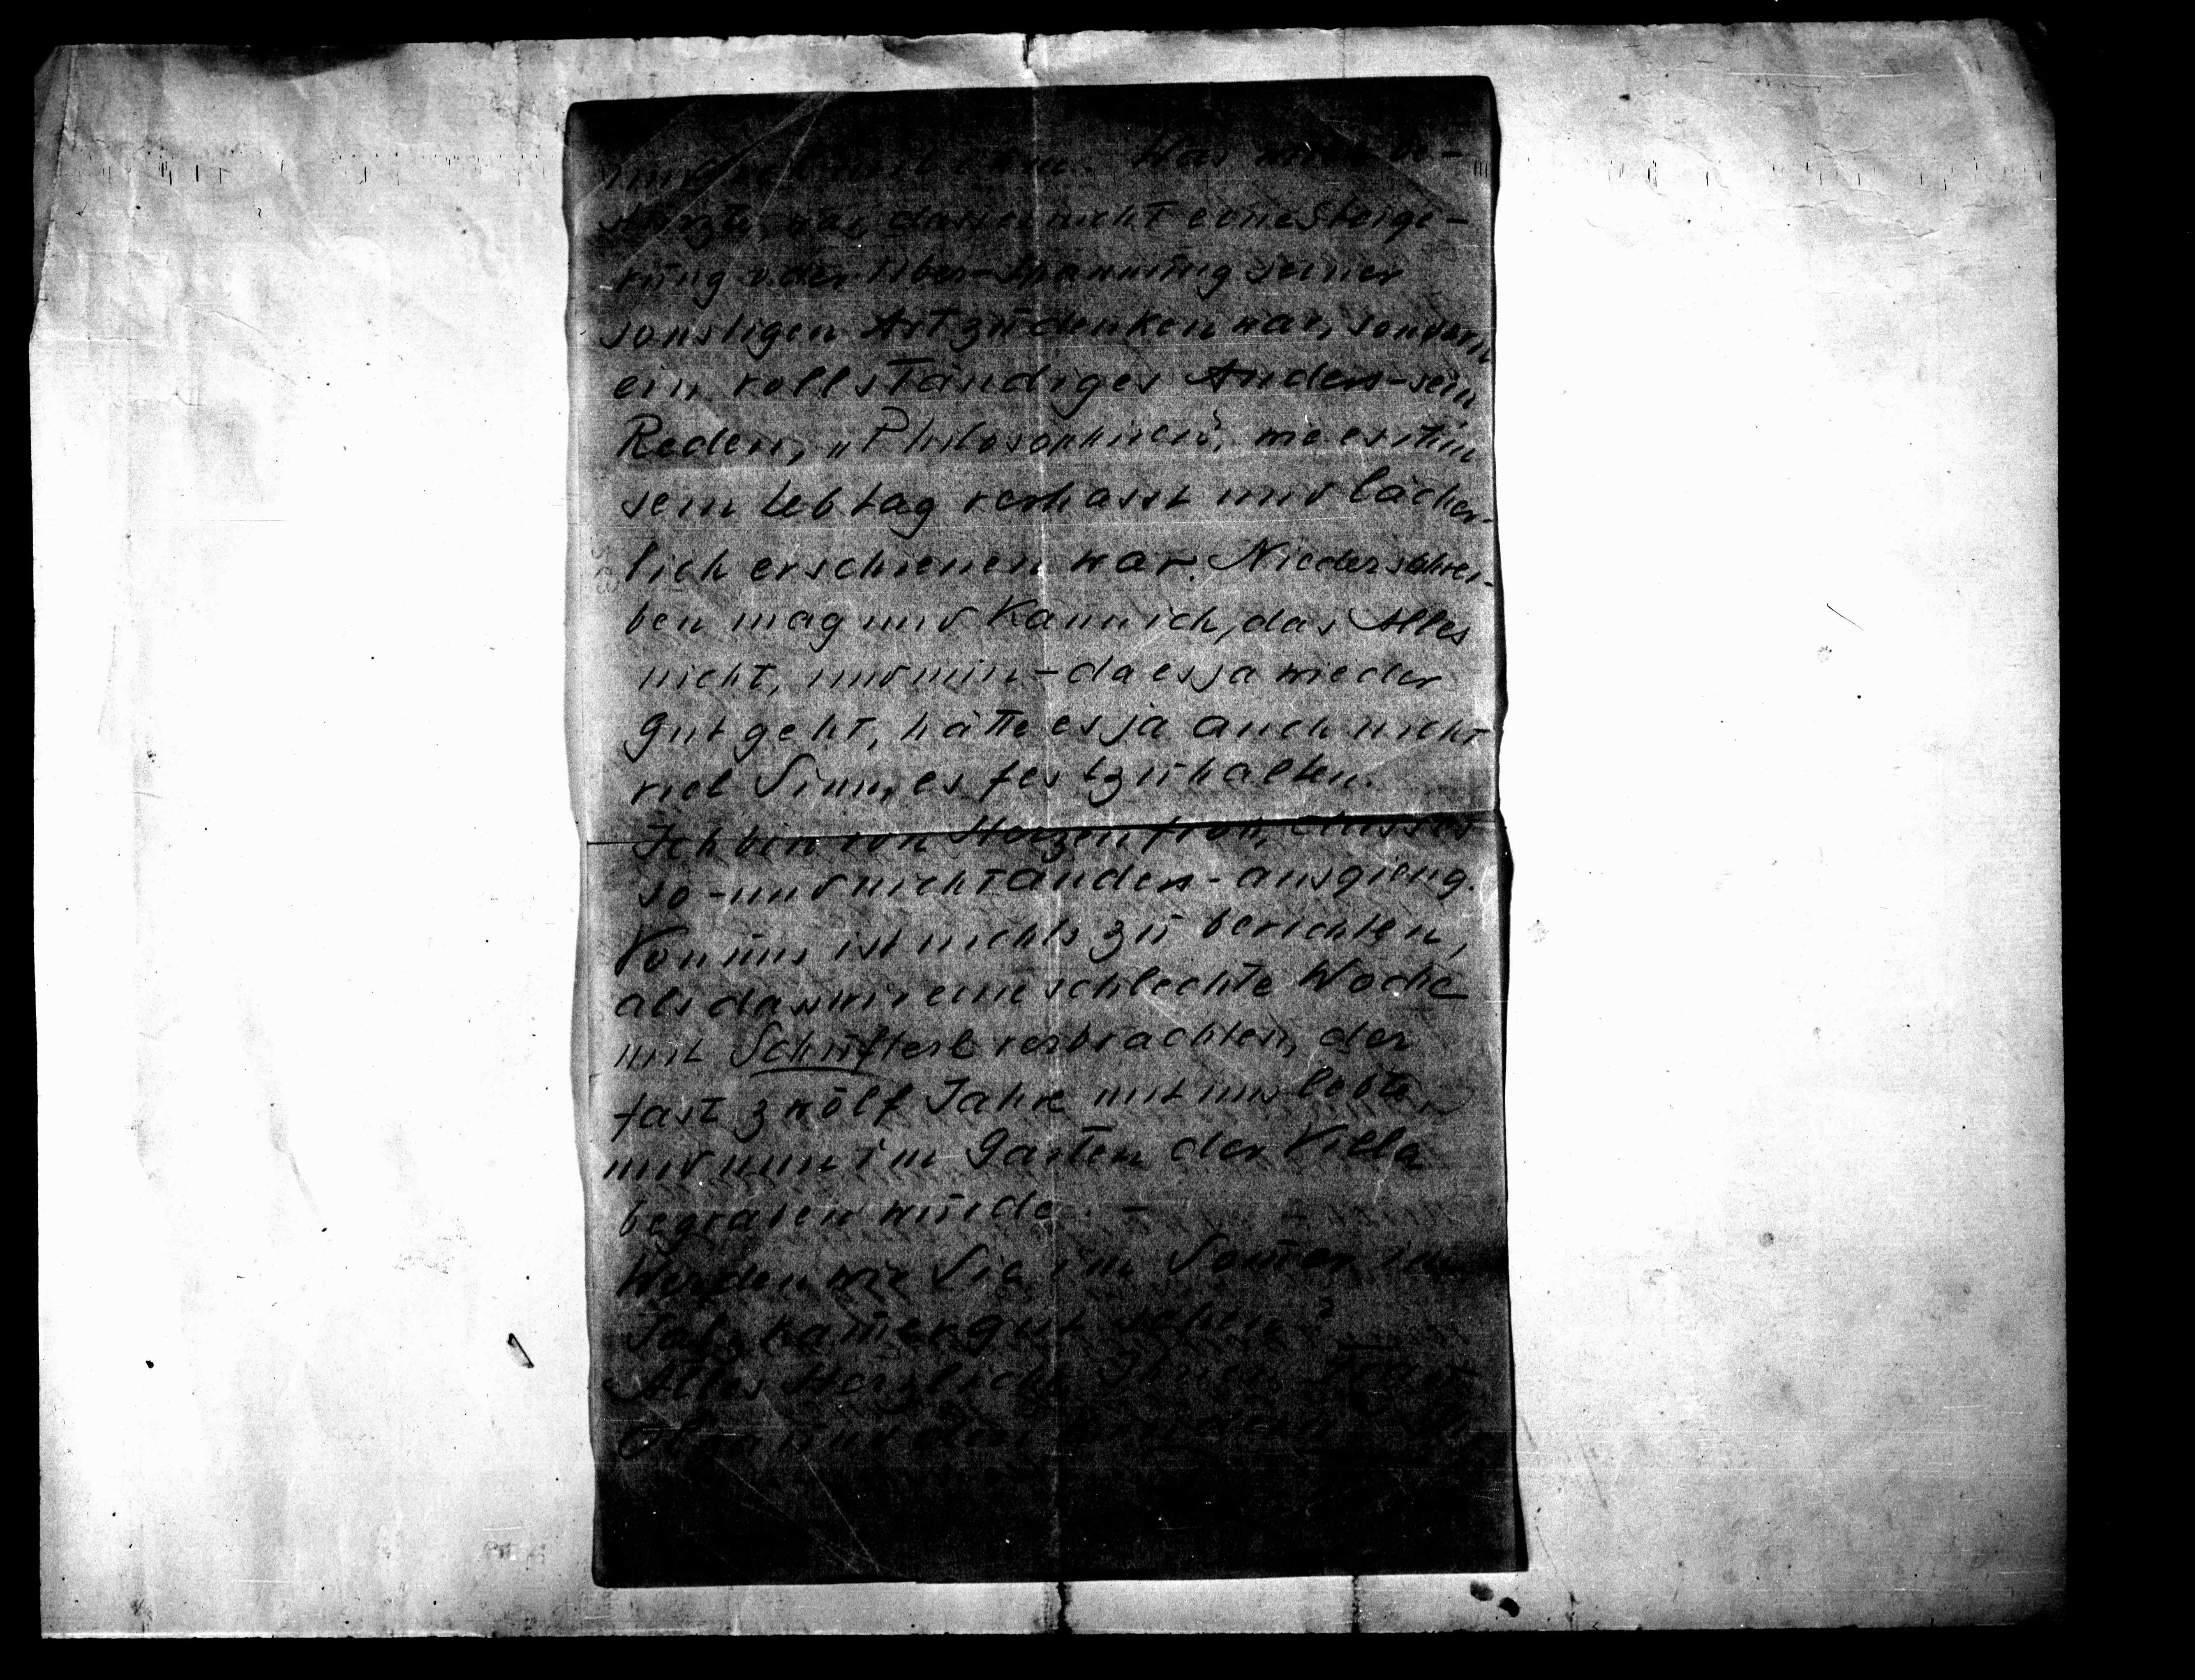 und Was mich be-
stürzte, war, dass es nicht eine Steige-
rung oder Über-Spannung seiner
sonstigen Art zu denken war, sondern
ein vollständiges Anders-sein
Reden, „Philosophieren", wie es ihm
sein Lebtag verhasst und lächer-
lich erschienen war. Niederschrei-
ben mag und kann ich, das Alles
nicht, und nun - da es ja wieder
gut geht, hätte es ja auch nicht
viel Sinn, es festzuhalten.
Ich bin von Herzen froh, dass es
so - und nicht anders - ausgieng.
Von uns ist nichts zu berichten,
als dass wir eine schlechte Woche
mit Schufterl verbrachten, der
fast zwölf Jahre mit uns lebte,
und nun im Garten der Villa
begraben wurde. -
Werden wir Sie im Som̅er im
Salzkam̅ergut sehen?
Alles Herzliche Ihnen Frau
Olga und den Kindern Ihr